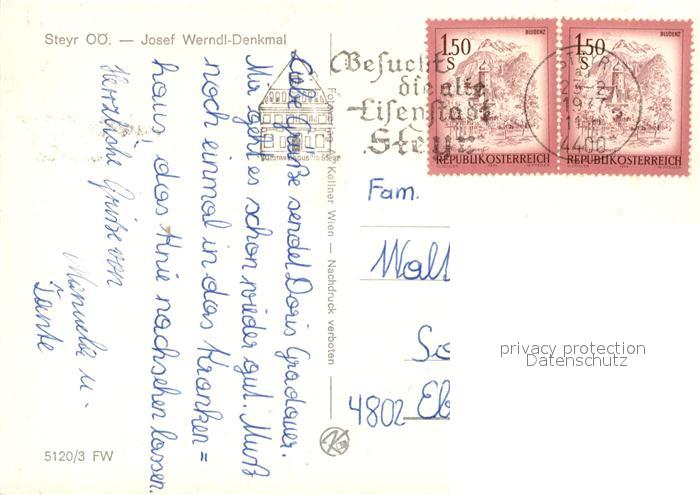 Steyr OÖ. — Josef Werndl-Denkmal
Liebe Grüße sendet Doris Gradauer.
Mir geht es schon wieder gut. Muß
noch einmal in das Kranken=
haus, das Knie nachsehen lassen.
Herzliche Grüße von
Manuela u.
Tante
5120/3 FW
Kellner Wien — Nachdruck verboten
Besucht
die alte
Eisenstadt
Steyr
1.50
S
BLUDENZ
REPUBLIK ÖSTERREICH
1.50
S
BLUDENZ
REPUBLIK ÖSTERREICH
1977
4400
Fam.
Walt
4802 Eb
privacy protection
Datenschutz